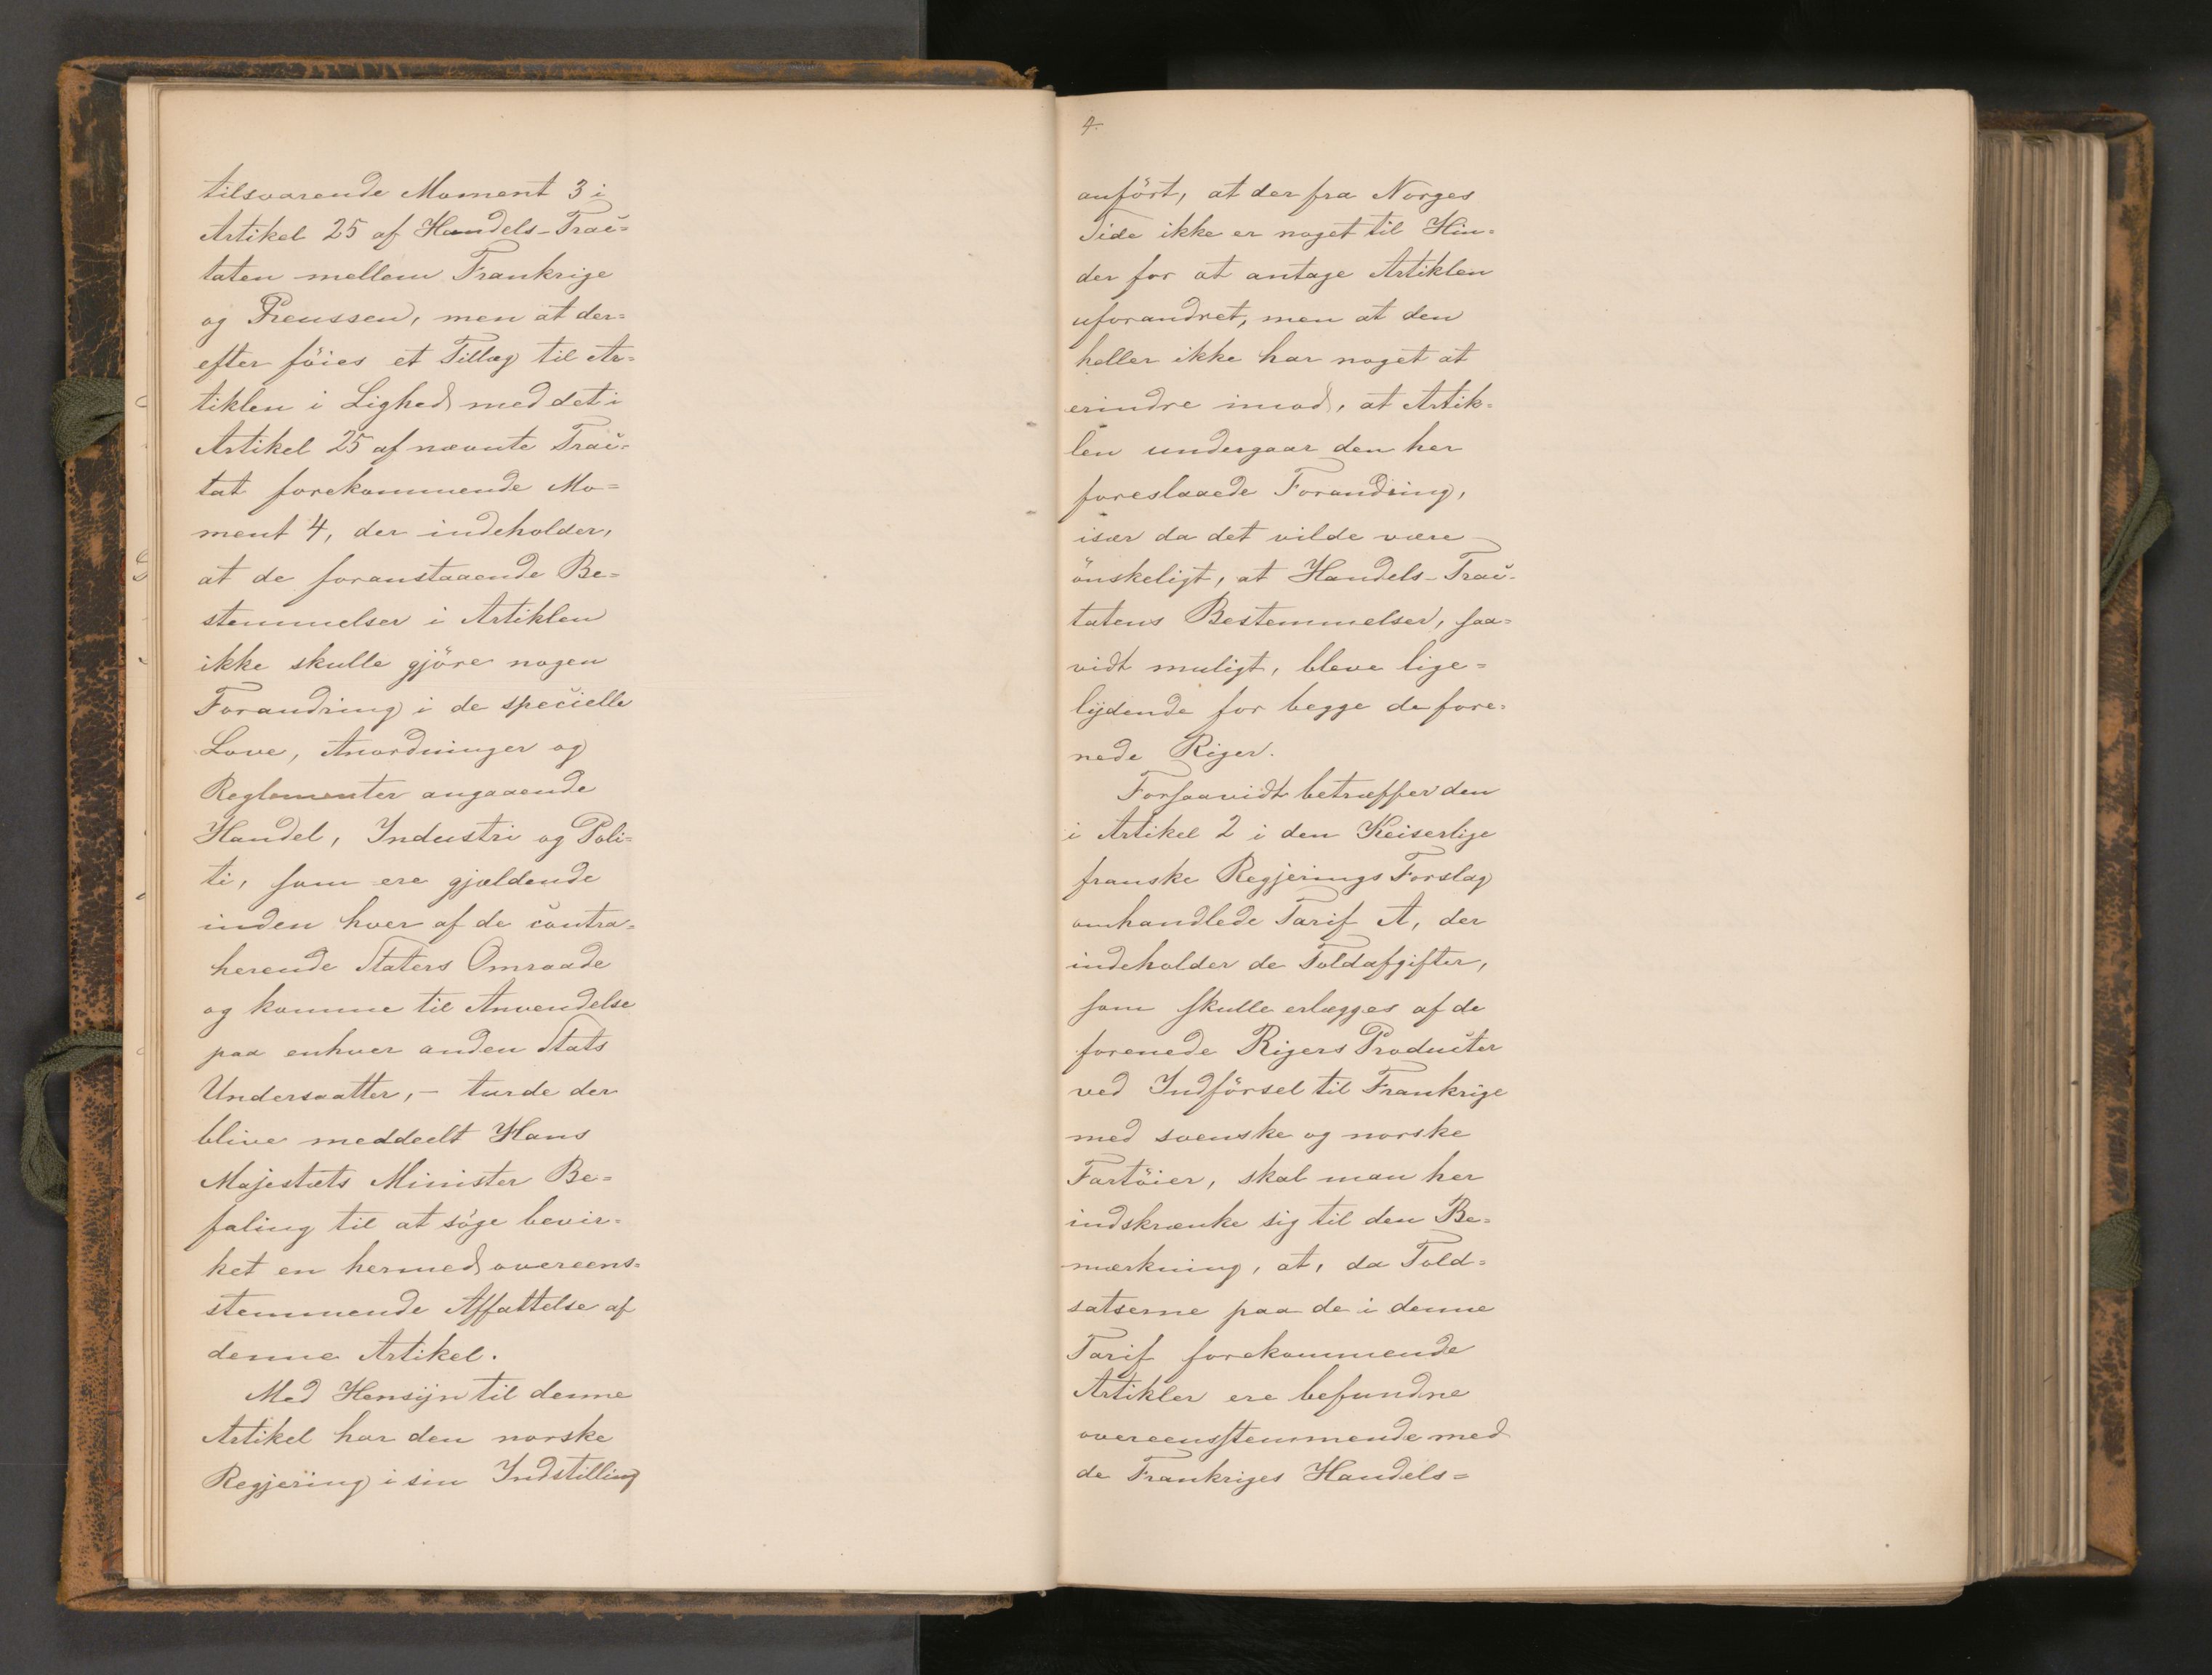 tilsvarende Moment 3 i
Artikel 25 af Handels-Trac-
taten mellem Frankrige
og Preussen, men at der-
efter föies et Tillæg til Ar-
tiklen i Lighed med det i
Artikel 25 af nævnte Trac-
tat forekommende Mo-
ment 4, der indeholder,
at de foranstaaende Be-
stemmelser i Artiklen
ikke skulle gjöre nogen
Forandring i de specielle
Love, Anordninger og
Reglementer angaaende
Handel, Industri og Poli-
ti, som ere gjældende
inden hver af de contra-
herende Staters Omraade
og komme til Anvendelse
paa enhver anden Stats
Undersaatter, – turde der
blive meddeelt Hans
Majestæts Minister Be-
faling til at söge bevir-
ket en hermed overeens-
stemmende Affattelse af
denne Artikel.
Med Hensyn til denne
Artikel har den norske
Regjering i sin Indstilling
4.
anfört, at der fra Norges
Side ikke er noget til Hin-
der for at antage Artiklen
uforandret, men at den
heller ikke har noget at
erindre imod, at Artik-
len undergaar den her
foreslaaede Forandring,
især da det vilde være
önskeligt, at Handels-Trac-
tatens Bestemmelser, saa-
vidt muligt, bleve lige-
lydende for begge de fore-
nede Riger.
Forsaavidt betræffer den
i Artikel 2 i den Keiserlige
franske Regjerings Forslag
omhandlede Tarif A, der
indeholder de Toldafgifter,
som skulle erlægges af de
forenede Rigers Producter
ved Indförsel til Frankrige
med svenske og norske
Fartöier, skal man her
indskrænke sig til den Be-
mærkning, at, da Told-
satserne paa de i denne
Tarif forekommende
Artikler ere befundne
overeensstemmende med
de Frankriges Handels-